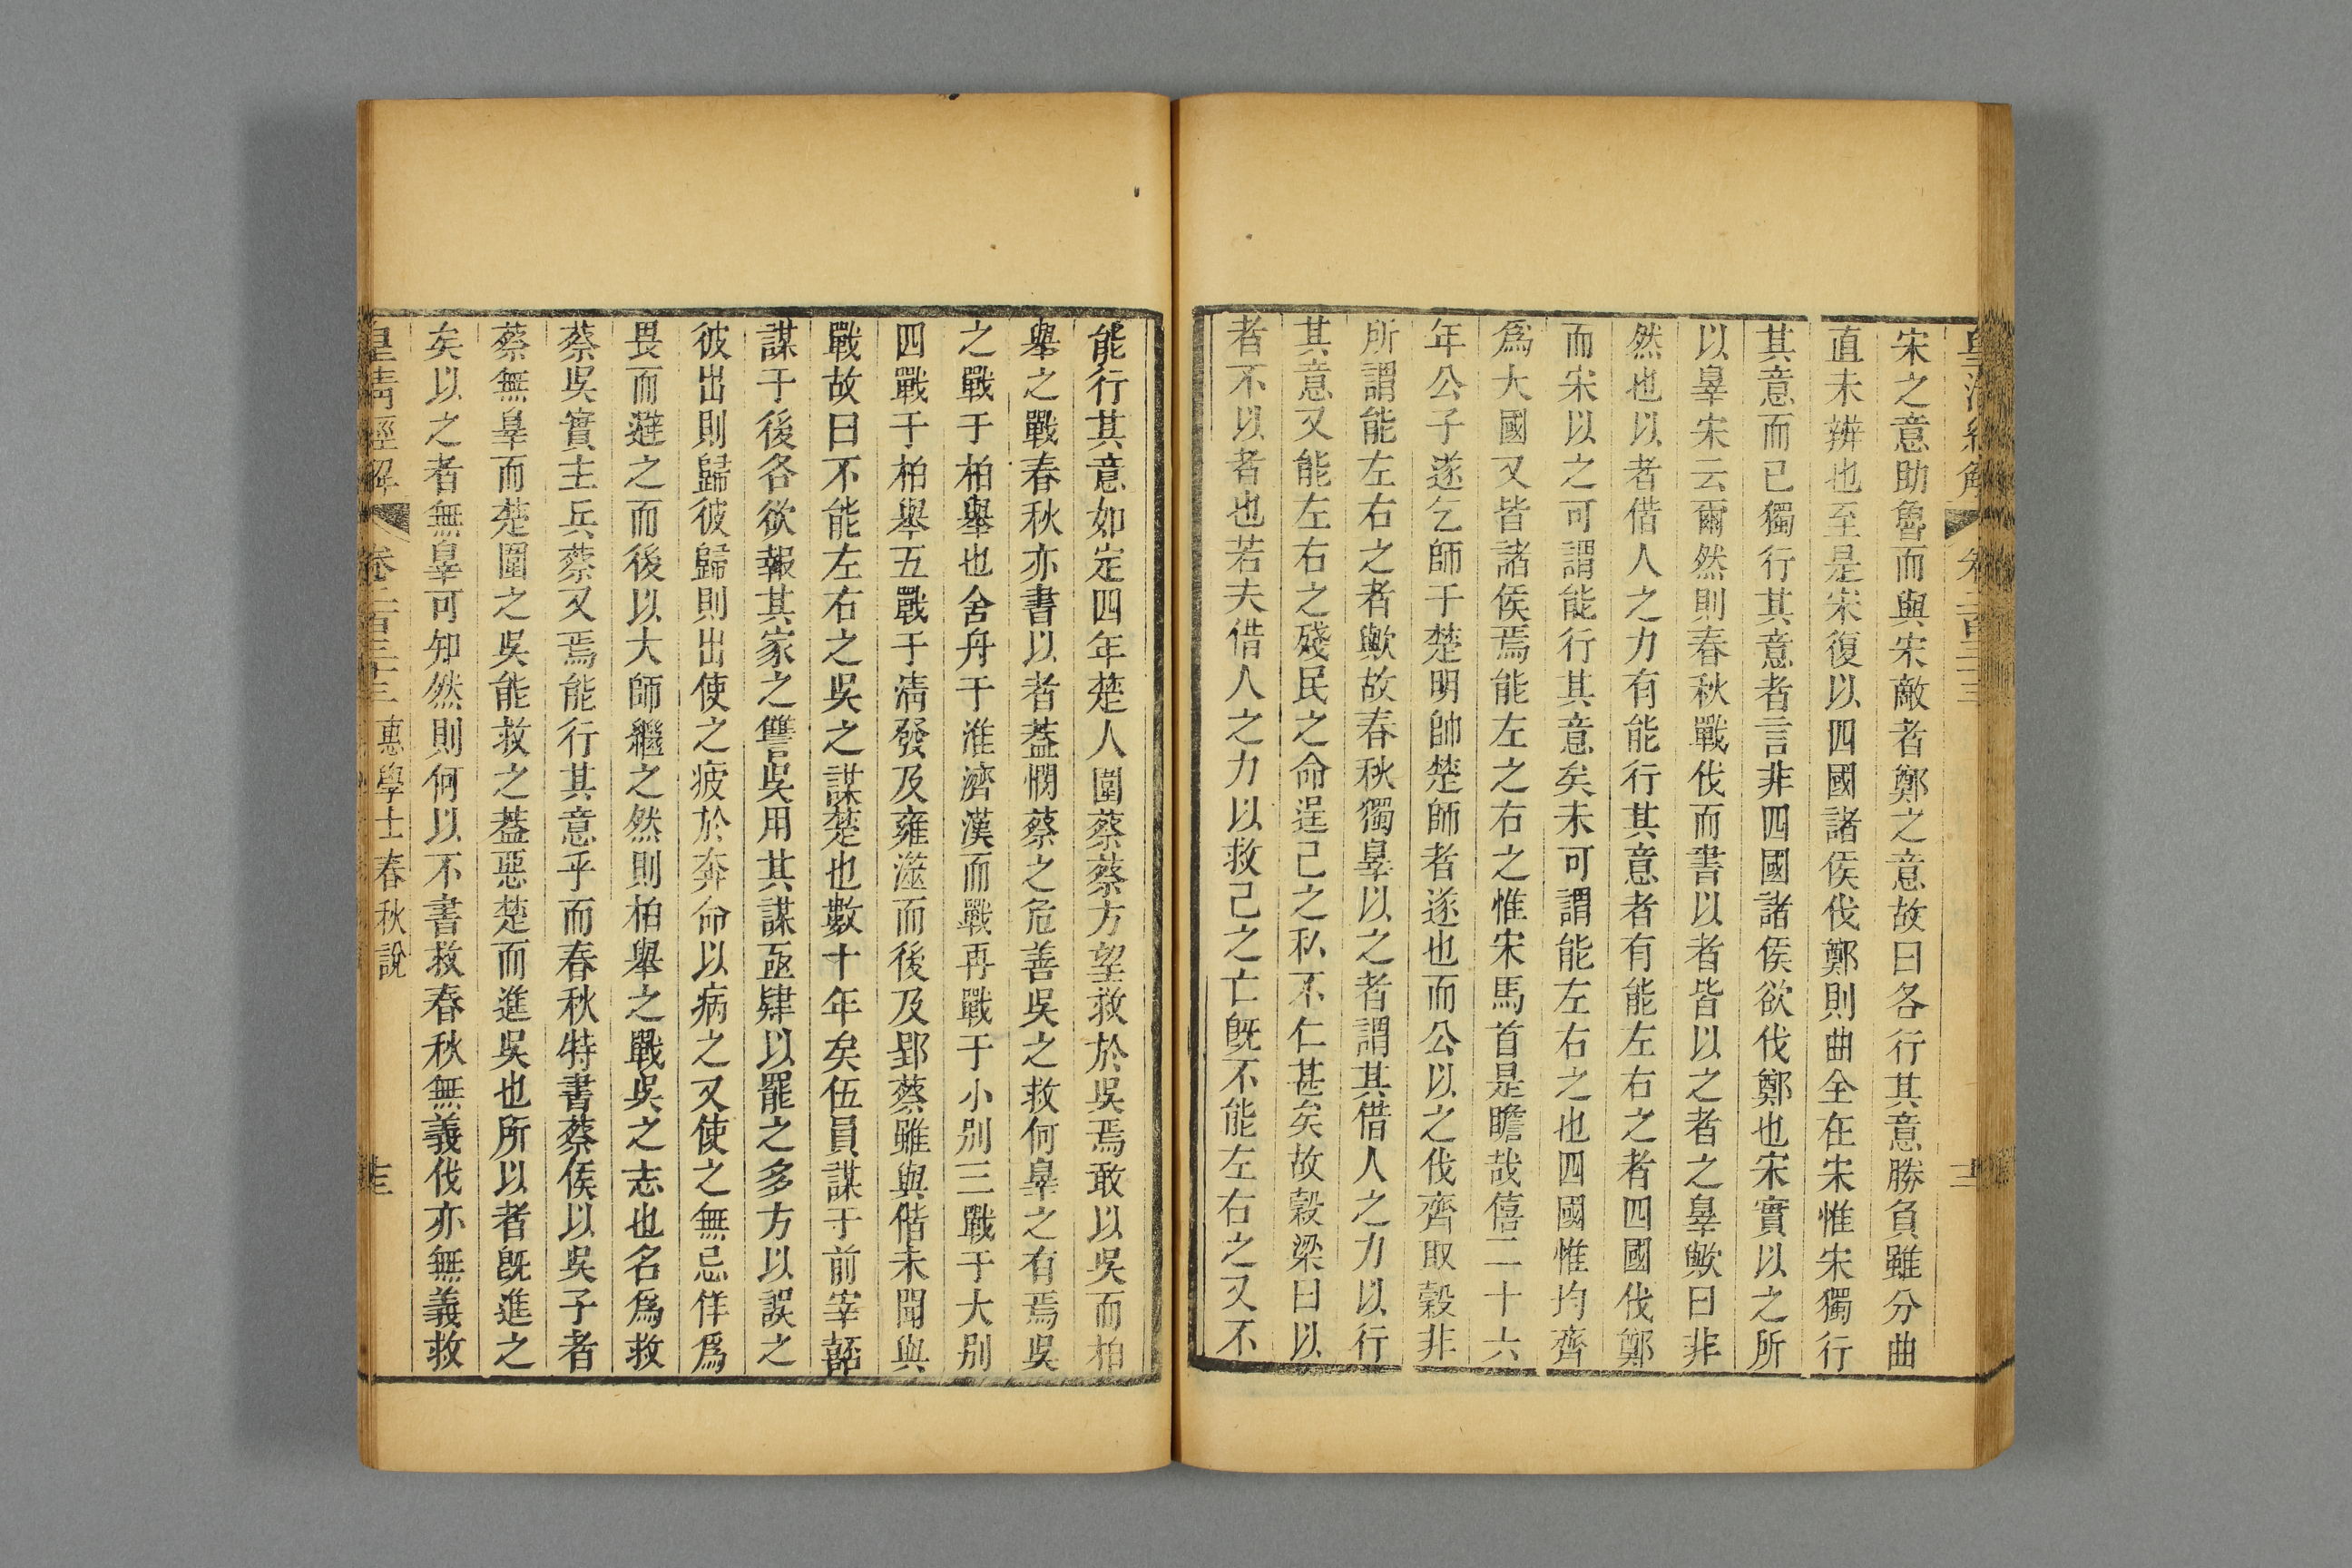 宋之意助魯而與宋敵者鄭之意故曰各行其意勝負雖分曲
直未辨也至是宋復以四國諸侯伐鄭則曲全在宋惟宋獨行
其意而已獨行其意者言非四國諸侯欲伐鄭也宋實以之所
以辠宋云爾然則春秋戰伐而書以者皆以之者之辠歟曰非
然也以者借人之力有能行其意者有能左右之者四國伐鄭
而宋以之可謂能行其意矣未可謂能左右之也四國惟均齊
爲大國又皆諸侯焉能左之右之惟宋馬首是瞻哉僖二十六
年公子遂乞師于楚明帥楚師者遂也而公以之伐齊取穀非
所謂能左右之者歟故春秋獨辠以之者謂其借人之力以行
其意又能左右之殘民之命逞己之私不仁甚矣故穀梁曰以
者不以者也若夫借人之力以救己之亡旣不能左右之又不
能行其意如定四年楚人圍蔡蔡方望救於吳焉敢以吳而柏
舉之戰春秋亦書以者葢憫蔡之危善吳之救何辠之有焉吳
之戰于柏舉也舍舟于淮濟漢而戰再戰于小别三戰于大别
四戰于柏舉五戰于淸發及雍澨而後及郢蔡雖與偕未聞與
戰故曰不能左右之吳之謀楚也數十年矣伍員謀于前宰嚭
謀于後各欲報其家之讐吳用其謀亟肄以罷之多方以誤之
彼出則歸彼歸則出使之疲於奔命以病之又使之無忌佯爲
畏而避之而後以大師繼之然則柏舉之戰吳之志也名爲救
蔡吳實主兵蔡又焉能行其意乎而春秋特書蔡侯以吳子者
蔡無辠而楚圍之吳能救之葢惡楚而進吳也所以者旣進之
矣以之者無辠可知然則何以不書救春秋無義伐亦無義救
皇淸經解 卷二百三十三 惠學士春秋說